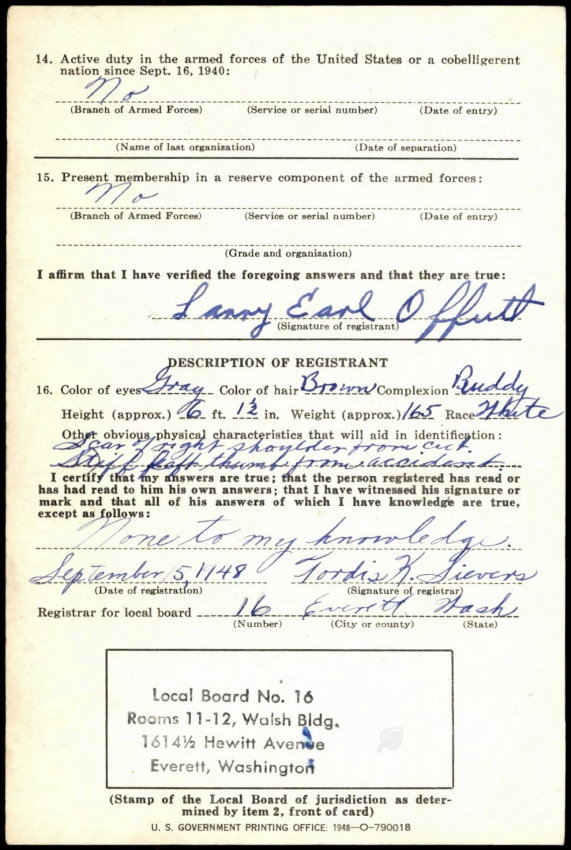 14. Active duty in the armed forces of the United States or a cobelligerent
nation since Sept. 16, 1940:
No
(Branch of Armed Forces) (Service or serial number) (Date of entry)
(Name of last organization) (Date of separation)
15. Present membership in a reserve component of the armed forces:
No
(Branch of Armed Forces) (Service or serial number) (Date of entry)
(Grade and organization)
I affirm that I have verified the foregoing answers and that they are true:
Lanny Earl Offutt
(Signature of registrant)
DESCRIPTION OF REGISTRANT
16. Color of eyes Gray Color of hair Brown Complexion Ruddy
Height (approx.) 6 ft. 1½ in. Weight (approx.) 165 Race White
Other obvious physical characteristics that will aid in identification:
Scar right shoulder from cut.
Stiff left thumb from accident.
I certify that my answers are true; that the person registered has read or
has had read to him his own answers; that I have witnessed his signature or
mark and that all of his answers of which I have knowledge are true,
except as follows:
None to my knowledge.
September 15, 1948 Tordis K. Sievers
(Date of registration) (Signature of registrar)
Registrar for local board 16 Everett Wash
(Number) (City or county) (State)
Local Board No. 16
Rooms 11-12, Walsh Bldg.
1614½ Hewitt Avenue
Everett, Washington
(Stamp of the Local Board of jurisdiction as deter-
mined by item 2, front of card)
U. S. GOVERNMENT PRINTING OFFICE: 1948—O-790018